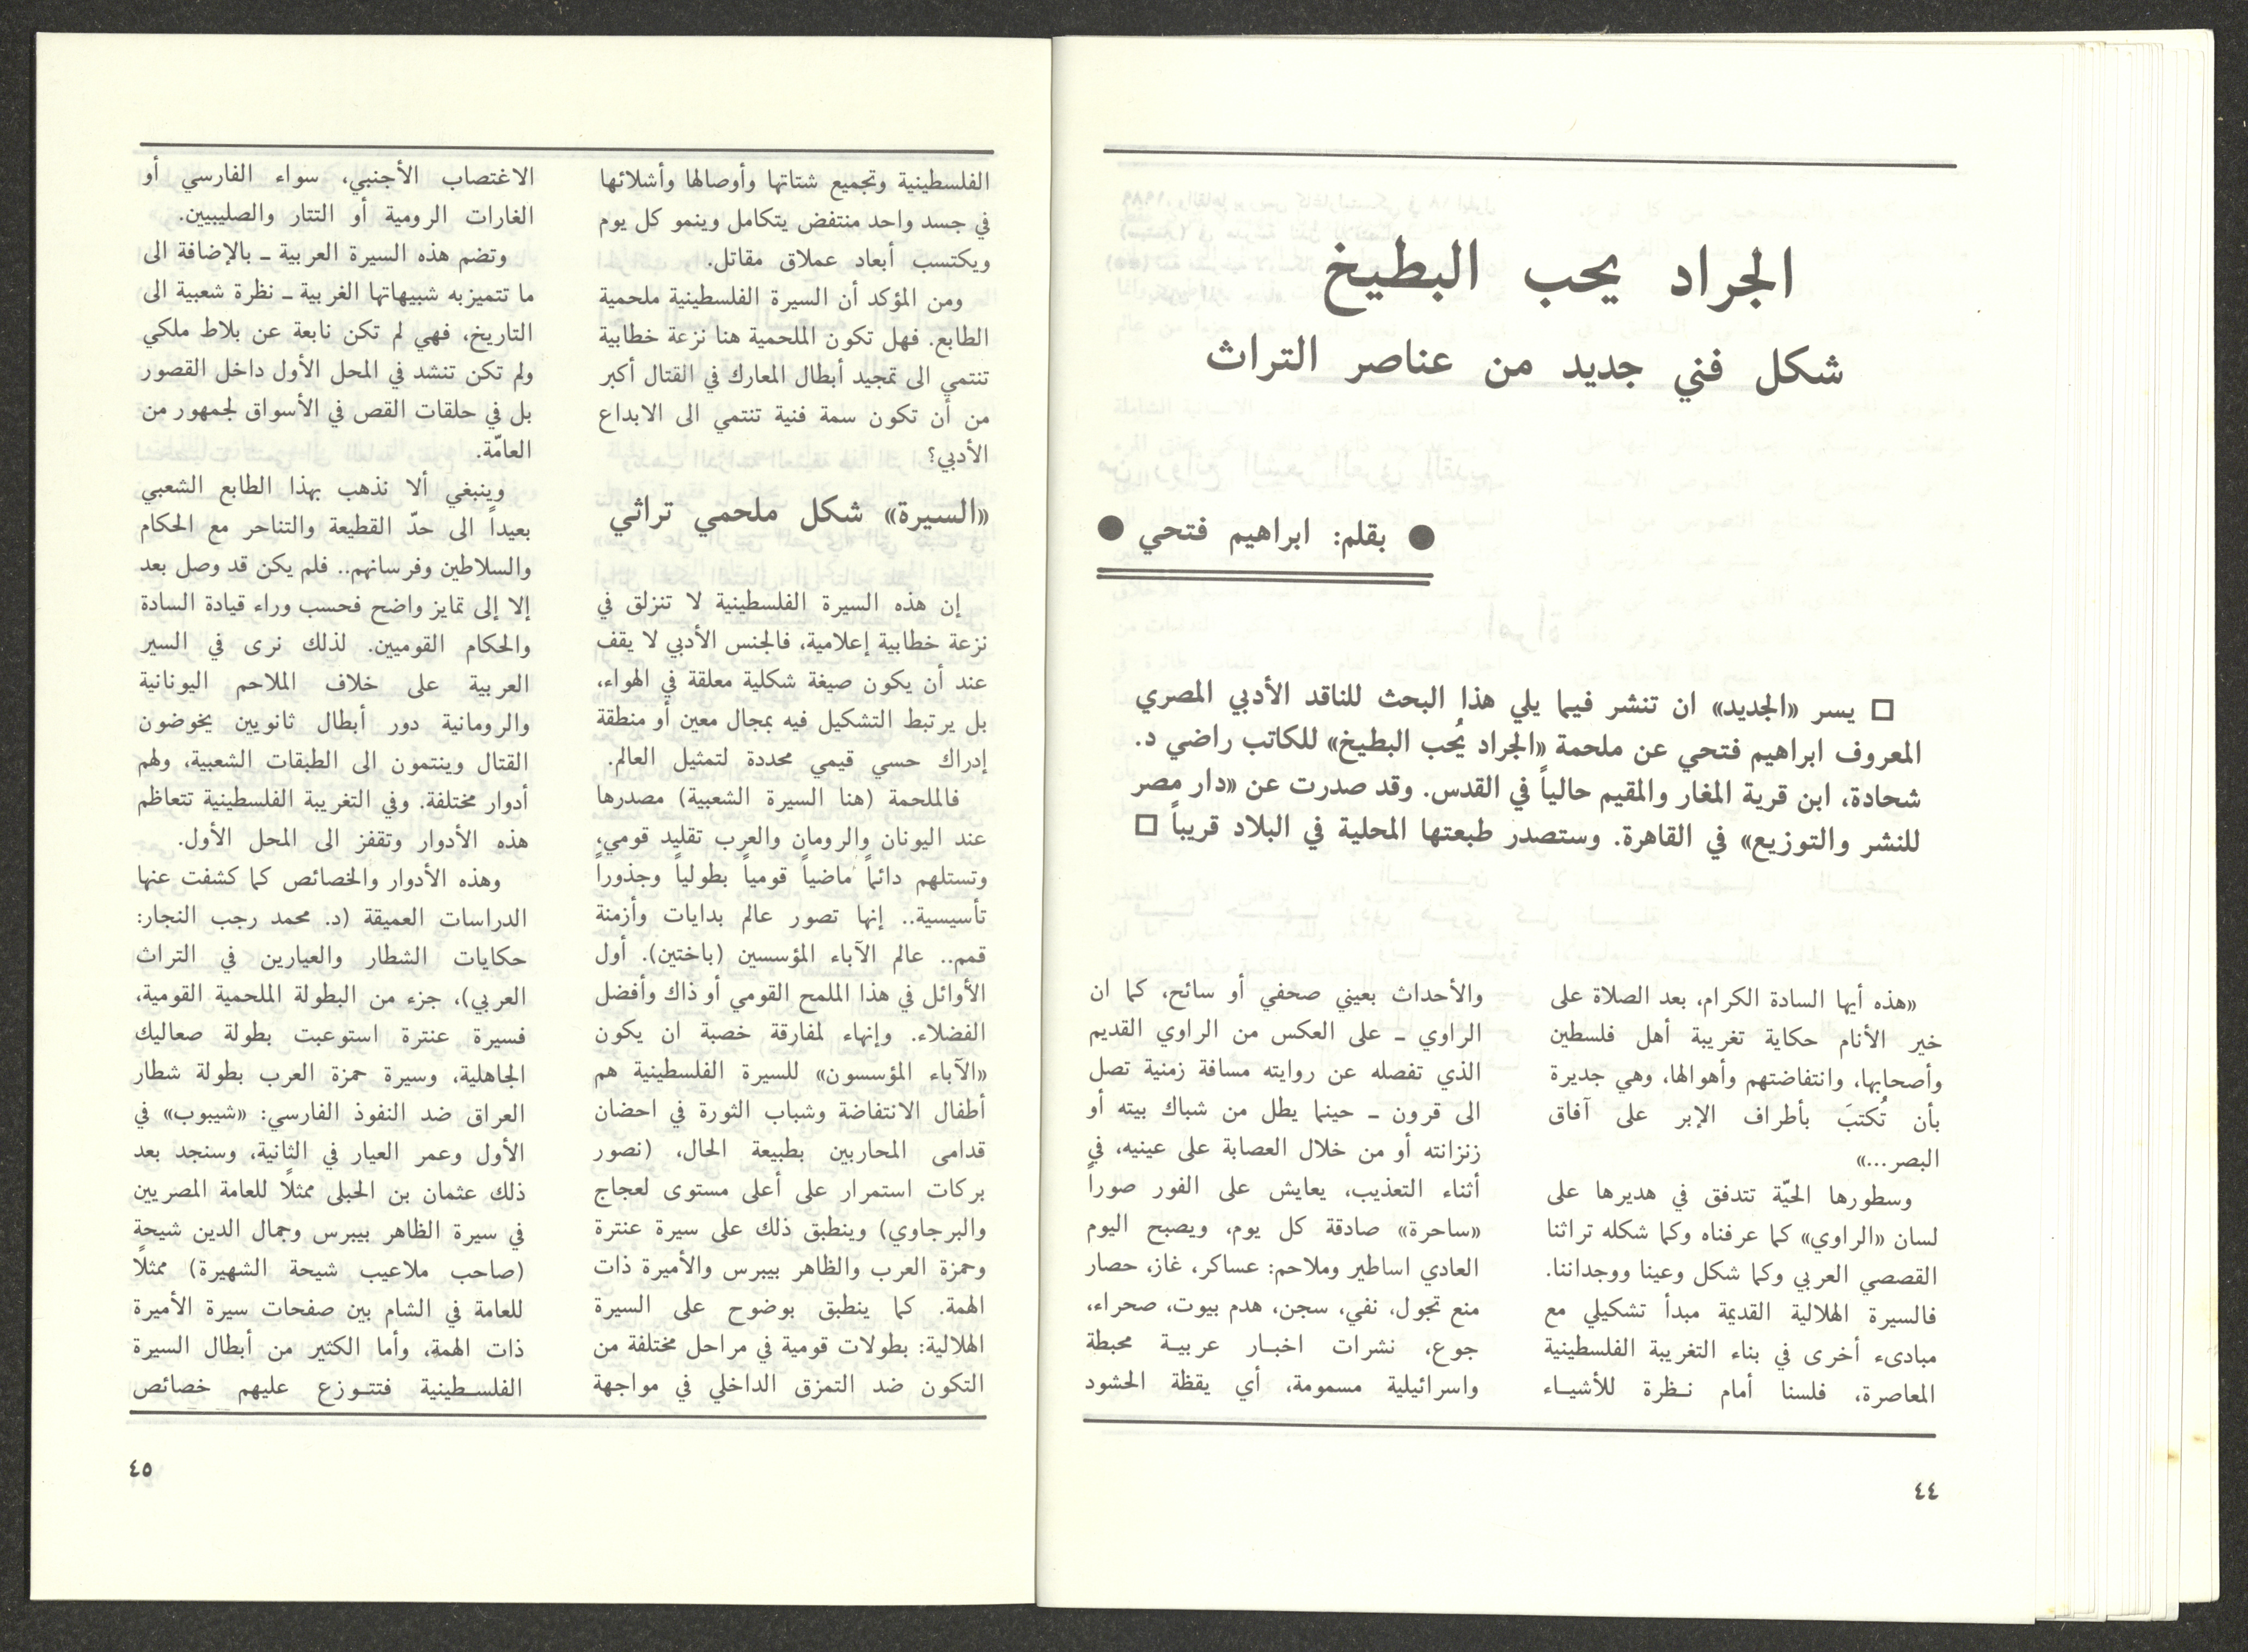 الجراد يحب البطيخ
شكل فني جديد من عناصر التراث
● بقلم: ابراهيم فتحي ●
□ يسر «الجديد» ان تنشر فيما يلي هذا البحث للناقد الأدبي المصري
المعروف ابراهيم فتحي عن ملحمة «الجراد يُحب البطيخ» للكاتب راضي د.
شحادة، ابن قرية المغار والمقيم حالياً في القدس. وقد صدرت عن «دار مصر
للنشر والتوزيع» في القاهرة. وستصدر طبعتها المحلية في البلاد قريباً □
«هذه أيها السادة الكرام، بعد الصلاة على
خير الأنام حكاية تغريبة أهل فلسطين
وأصحابها، وانتفاضتهم وأهوالها، وهي جديرة
بأن تُكتبَ بأطراف الإبر على آفاق
البصر...»
وسطورها الحيّة تتدفق في هديرها على
لسان «الراوي» كما عرفناه وكما شكله تراثنا
القصصي العربي وكما شكل وعينا ووجداننا.
فالسيرة الهلالية القديمة مبدأ تشكيلي مع
مبادىء أخرى في بناء التغريبة الفلسطينية
المعاصرة، فلسنا أمام نظرة للأشياء
والأحداث بعيني صحفي أو سائح، كما ان
الراوي ـ على العكس من الراوي القديم
الذي تفصله عن روايته مسافة زمنية تصل
الى قرون ـ حينما يطل من شباك بيته أو
زنزانته أو من خلال العصابة على عينيه، في
أثناء التعذيب، يعايش على الفور صوراً
«ساحرة» صادقة كل يوم، ويصبح اليوم
العادي اساطير وملاحم: عساكر، غاز، حصار
منع تجول، نفي، سجن، هدم بيوت، صحراء،
جوع، نشرات اخبار عربية محبطة
واسرائيلية مسمومة، أي يقظة الحشود
٤٤
الفلسطينية وتجميع شتاتها وأوصالها وأشلائها
في جسد واحد منتفض يتكامل وينمو كل يوم
ويكتسب أبعاد عملاق مقاتل.
ومن المؤكد أن السيرة الفلسطينية ملحمية
الطابع. فهل تكون الملحمية هنا نزعة خطابية
تنتمي الى تمجيد أبطال المعارك في القتال أكبر
من أن تكون سمة فنية تنتمي الى الابداع
الأدبي؟
«السيرة» شكل ملحمي تراثي
إن هذه السيرة الفلسطينية لا تنزلق في
نزعة خطابية إعلامية، فالجنس الأدبي لا يقف
عند أن يكون صيغة شكلية معلقة في الهواء،
بل يرتبط التشكيل فيه بمجال معين أو منطقة
إدراك حسي قيمي محددة لتمثيل العالم.
فالملحمة (هنا السيرة الشعبية) مصدرها
عند اليونان والرومان والعرب تقليد قومي،
وتستلهم دائماً ماضياً قومياً بطولياً وجذوراً
تأسيسية.. إنها تصور عالم بدايات وأزمنة
قمم.. عالم الآباء المؤسسين (باختين). أول
الأوائل في هذا الملمح القومي أو ذاك وأفضل
الفضلاء. وإنهاء لمفارقة خصبة ان يكون
«الآباء المؤسسون» للسيرة الفلسطينية هم
أطفال الانتفاضة وشباب الثورة في احضان
قدامى المحاربين بطبيعة الحال، (نصور
بركات استمرار على أعلى مستوى لعجاج
والبرجاوي) وينطبق ذلك على سيرة عنترة
وحمزة العرب والظاهر بيبرس والأميرة ذات
الهمة. كما ينطبق بوضوح على السيرة
الهلالية: بطولات قومية في مراحل مختلفة من
التكون ضد التمزق الداخلي في مواجهة
الاغتصاب الأجنبي، سواء الفارسي أو
الغارات الرومية أو التتار والصليبيين.
وتضم هذه السيرة العربية ـ بالإضافة الى
ما تتميزبه شبيهاتها الغربية ـ نظرة شعبية الى
التاريخ، فهي لم تكن نابعة عن بلاط ملكي
ولم تكن تنشد في المحل الأول داخل القصور
بل في حلقات القص في الأسواق لجمهور من
العامّة.
وينبغي ألا نذهب بهذا الطابع الشعبي
بعيداً الى حدّ القطيعة والتناحر مع الحكام
والسلاطين وفرسانهم.. فلم يكن قد وصل بعد
إلا إلى تمايز واضح فحسب وراء قيادة السادة
والحكام القوميين. لذلك نرى في السير
العربية على خلاف الملاحم اليونانية
والرومانية دور أبطال ثانويين يخوضون
القتال وينتمون الى الطبقات الشعبية، ولهم
أدوار مختلفة. وفي التغريبة الفلسطينية تتعاظم
هذه الأدوار وتقفز الى المحل الأول.
وهذه الأدوار والخصائص كما كشفت عنها
الدراسات العميقة (د. محمد رجب النجار:
حكايات الشطار والعيارين في التراث
العربي)، جزء من البطولة الملحمية القومية،
فسيرة عنترة استوعبت بطولة صعاليك
الجاهلية، وسيرة حمزة العرب بطولة شطار
العراق ضد النفوذ الفارسي: «شيبوب» في
الأول وعمر العيار في الثانية، وسنجد بعد
ذلك عثمان بن الحبلى ممثلًا للعامة المصريين
في سيرة الظاهر بيبرس وجمال الدين شيحة
(صاحب ملاعيب شيحة الشهيرة) ممثلًا
للعامة في الشام بين صفحات سيرة الأميرة
ذات الهمة، وأما الكثير من أبطال السيرة
الفلسطينية فتتوزع عليهم خصائص
٤٥